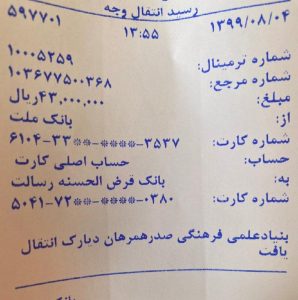 رسید انتقال وجه
۱۳۹۹/۰۸/۰۴ ۱۳:۵۵ ۵۹۷۷۰۱
شماره ترمینال: ۱۰۰۰۵۲۵۹
شماره مرجع: ۱۰۳۶۷۷۵۰۰۳۶۸
مبلغ: ۴۳,۰۰۰,۰۰۰ریال
از: بانک ملت
شماره کارت: ۶۱۰۴-۳۳**-****-۳۵۳۷
حساب: حساب اصلی کارت
به: بانک قرض الحسنه رسالت
شماره کارت: ۵۰۴۱-۷۲**-****-۰۳۸۰
بنیادعلمی فرهنگی صدرهمرهان دیارک انتقال
یافت